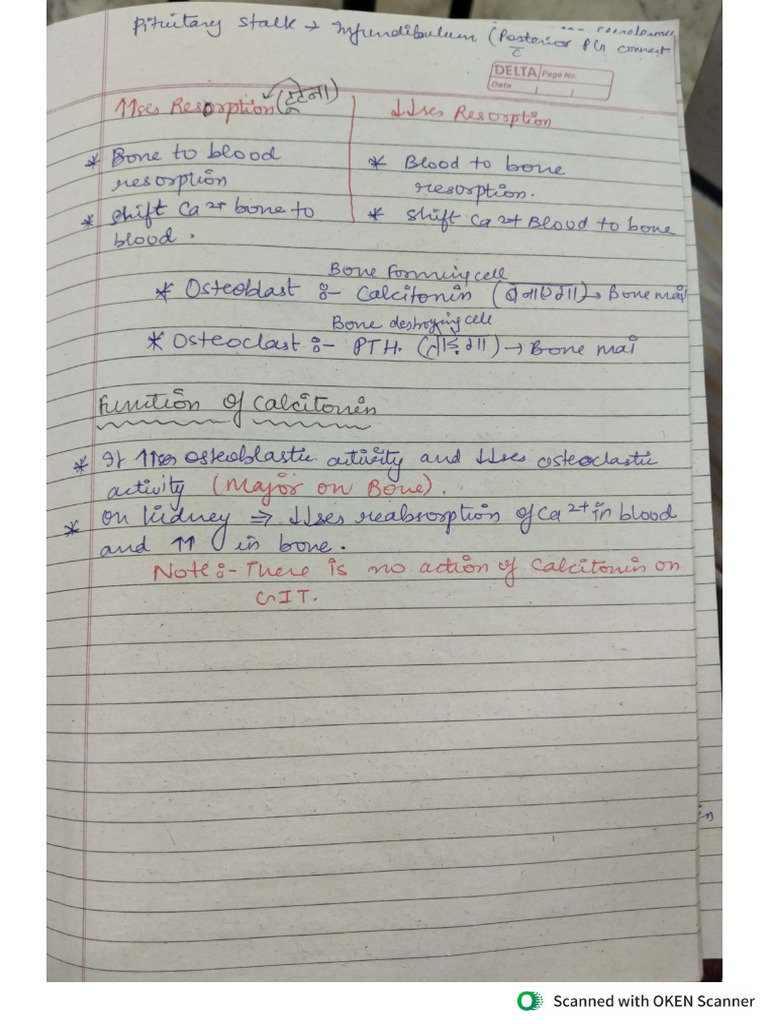 Pituitary Stalk → Infundibulum (Posterior PG connect
DELTA Page No.
Date
↑↑ses Resorption (टूटना)
↓↓ses Resorption
* Bone to blood
resorption
* Shift Ca²⁺ bone to
blood.
* Blood to bone
resorption.
* Shift Ca²⁺ Blood to bone
Bone Forming cell
* Osteoblast :- Calcitonin (बनाएगा) → Bone mai
Bone destroying cell
* Osteoclast :- PTH. (तोड़ेगा) → Bone mai
Function of Calcitonin
* It ↑↑ses osteoblastic activity and ↓↓ses osteoclastic
activity (Major on Bone).
* On Kidney ⇒ ↓↓ses reabsorption of Ca²⁺ in blood
and ↑↑ in bone.
Note :- There is no action of Calcitonin on
GIT.
in
Scanned with OKEN Scanner